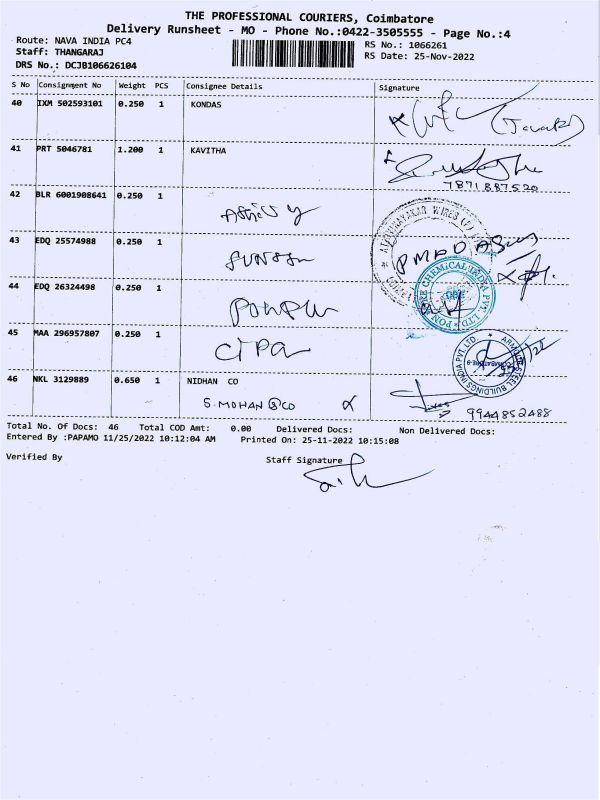 THE PROFESSIONAL COURIERS, Coimbatore
Delivery Runsheet - MO - Phone No.:0422-3505555 - Page No.:4
Route: NAVA INDIA PC4 RS No.: 1066261
Staff: THANGARAJ RS Date: 25-Nov-2022
DRS No.: DCJB106626104
S No Consignment No Weight PCS Consignee Details Signature
40 IXM 502593101 0.250 1 KONDAS
41 PRT 5046781 1.200 1 KAVITHA
7871887520
42 BLR 6001908641 0.250 1
43 EDQ 25574988 0.250 1
44 EDQ 26324498 0.250 1
PON PURE CHEMICAL INDIA PVT. LTD
45 MAA 296957807 0.250 1 CIPA
STEEL BUILDINGS INDIA PVT. LTD
46 NKL 3129889 0.650 1 NIDHAN CO
S. MOHAN & CO 9944852488
Total No. Of Docs: 46 Total COD Amt: 0.00 Delivered Docs: Non Delivered Docs:
Entered By :PAPAMO 11/25/2022 10:12:04 AM Printed On: 25-11-2022 10:15:08
Verified By Staff Signature